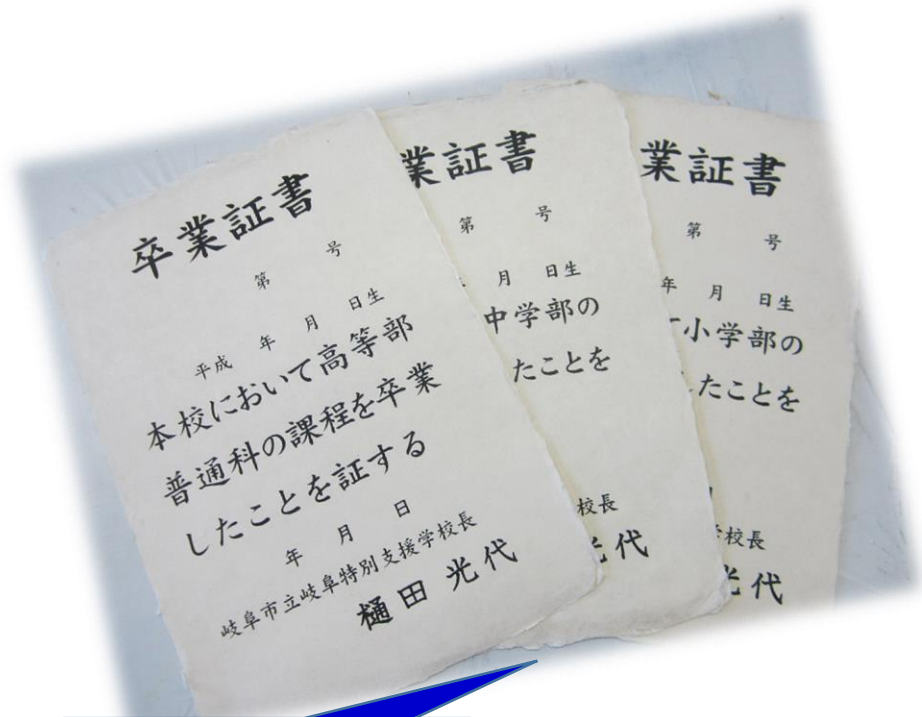 卒業証書
第 号
平成 年 月 日生
本校において高等部
普通科の課程を卒業
したことを証する
年 月 日
岐阜市立岐阜特別支援学校長
樋田 光代
業証書
第 号
月 日生
中学部の
たことを
校長
代
業証書
第 号
年 月 日生
小学部の
たことを
校長
光代